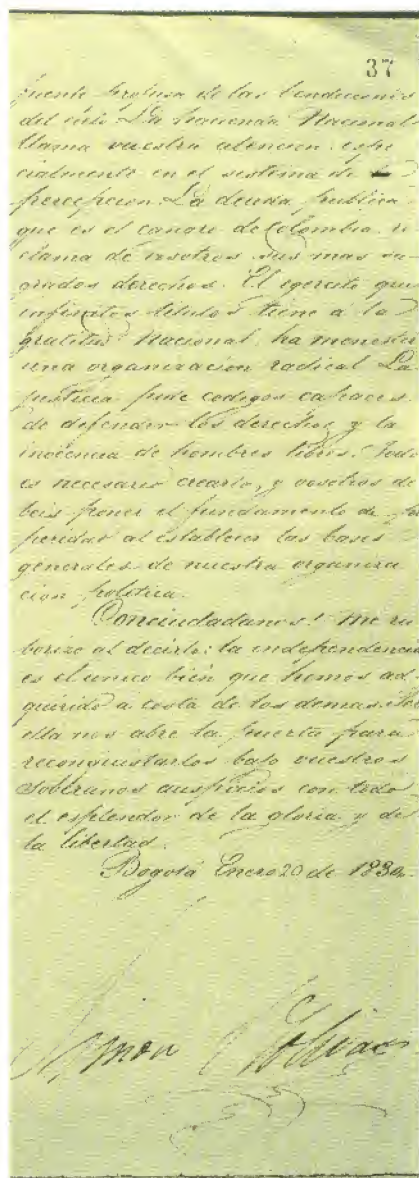 37
fuente profusa de las bendiciones
del cielo La hacienda Nacional
llama vuestra atencion espe
cialmente en el sistema de
percepcion. La deuda publica
que es el cancro de Colombia re
clama de vosotros sus mas sa
grados derechos. El egercito que
infinitos titulos tiene á la
gratitud Nacional, ha menester
una organizacion radical La
justicia pide codigos capaces
de defender los derechos y la
inocencia de hombres libres. Todo
es necesario crearlo, y vosotros de
beis poner el fundamento de pros
peridad al establecer las bases
generales de nuestra organiza
cion politica.
Conciudadanos! me ru
borizo al decirlo: la independencia
es el unico bien que hemos ad
quirido a costa de los demas.
ella nos abre la puerta para
reconquistarlos bajo vuestros
soberanos auspicios con todo
el esplendor de la gloria y de
la libertad.
Bogotá Enero 20 de 1830.
Simon Bolivar